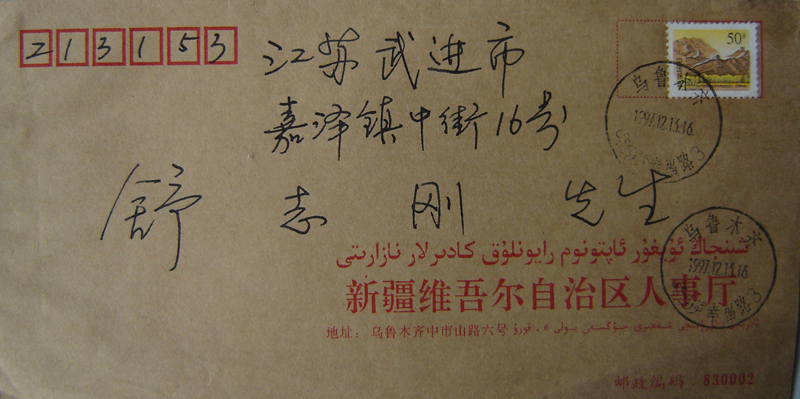 213153
50分
江苏武进市
嘉泽镇中街16号
舒志刚 先生
乌鲁木齐
1997.12.13.16
3
乌鲁木齐
1997.12.13.16
3
شىنجاڭ ئۇيغۇر ئاپتونوم رايونلۇق كادىرلار نازارىتى
新疆维吾尔自治区人事厅
地址：乌鲁木齐中市山路六号
邮政编码 830002